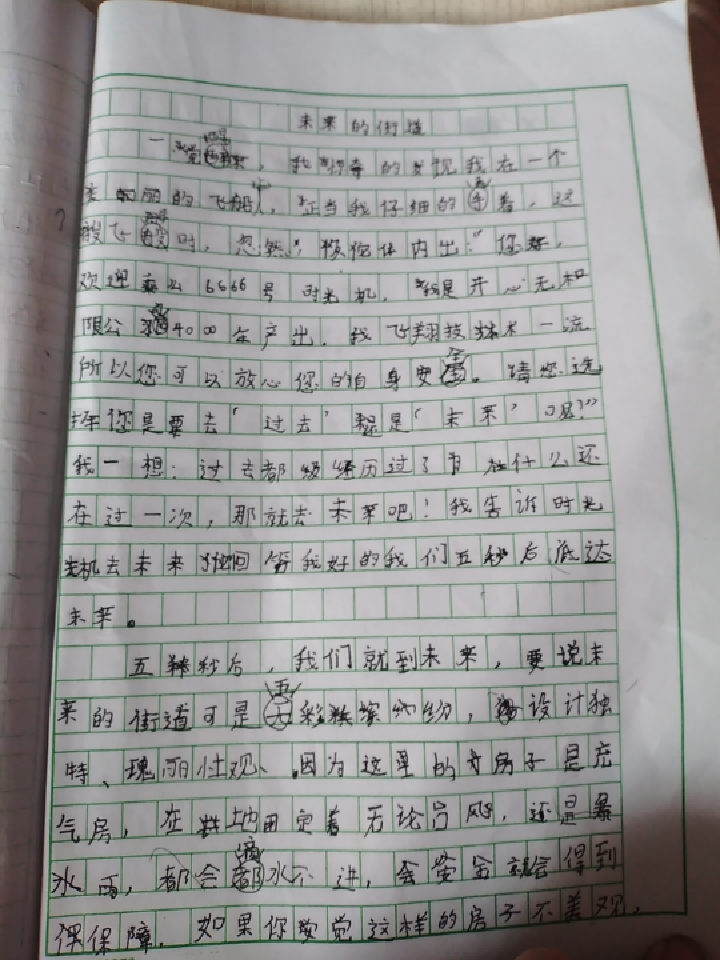 未来的街道
一觉醒来，我惊奇的发现我在一个
美丽的飞船，正当我仔细的看着，这
艘飞船时，忽然，体内出："您好，
欢迎乘坐6666号时光机，我是开心无和
限公司4000年产出，我飞翔技术一流
所以您可以放心您的自身安全。请您选
择您是要去'过去'还是'未来'呢?"
我一想：过去都经历过了有在什么还
在过一次，那就去未来吧！我告诉时光
机去未来他回答我好的我们五秒后底达
未来。
五秒后，我们就到未来，要说未
来的街道可是五彩缤纷，设计独
特、瑰丽壮观、因为这里的房子是充
气房，在地用定着无论台风，还是暴
水雨，都会滴水不进，会安全就会得到
保障。如果你要觉这样的房子不美观，